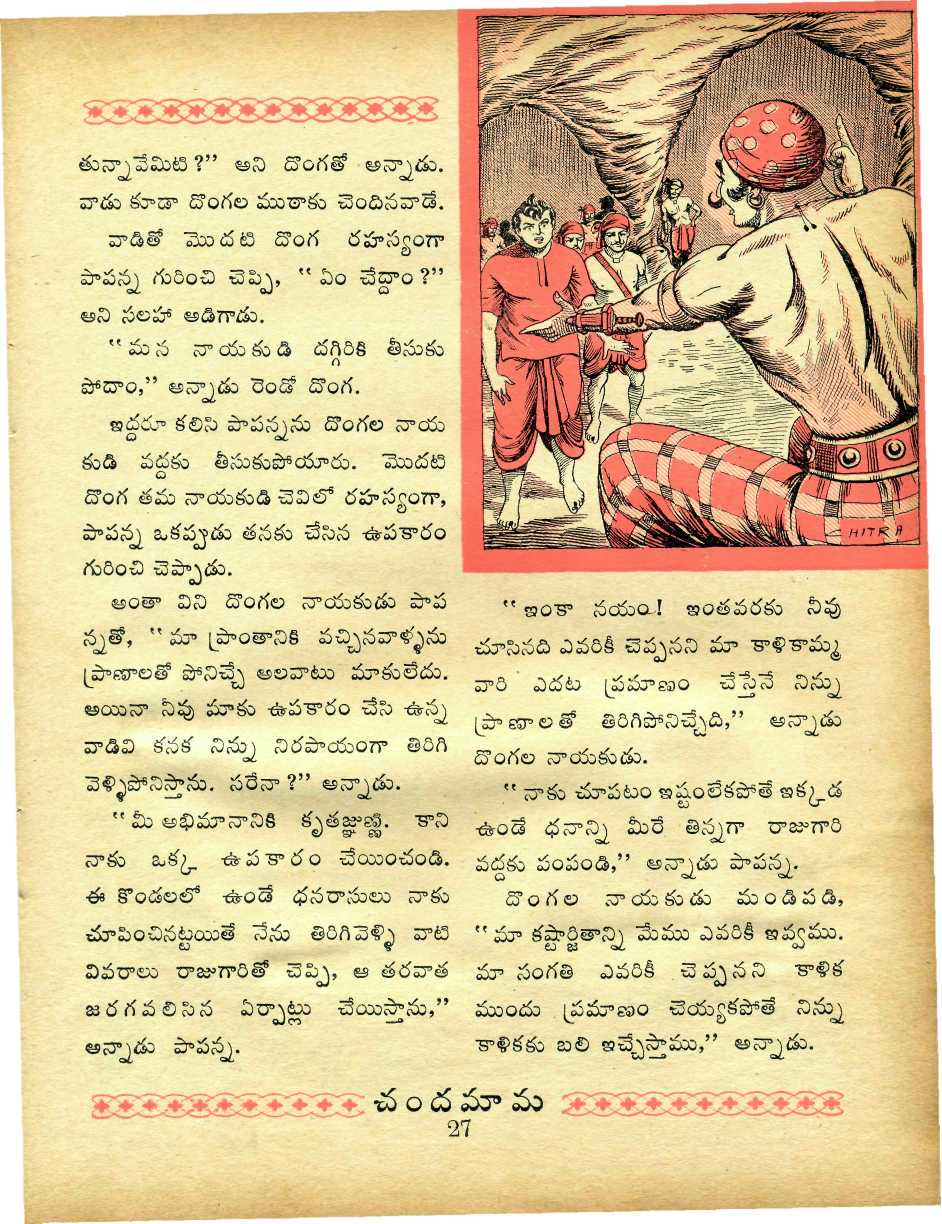 తున్నావేమిటి ?’’ అని దొంగతో అన్నాడు.
వాడు కూడా దొంగల ముఠాకు చెందినవాడే.
వాడితో మొదటి దొంగ రహస్యంగా
పాపన్న గురించి చెప్పి, ‘‘ ఏం చేద్దాం ?’’
అని సలహా అడిగాడు.
‘‘ మన నాయకుడి దగ్గిరికి తీసుకు
పోదాం,’’ అన్నాడు రెండో దొంగ.
ఇద్దరూ కలిసి పాపన్నను దొంగల నాయ
కుడి వద్దకు తీసుకుపోయారు. మొదటి
దొంగ తమ నాయకుడి చెవిలో రహస్యంగా,
పాపన్న ఒకప్పుడు తనకు చేసిన ఉపకారం
గురించి చెప్పాడు.
అంతా విని దొంగల నాయకుడు పాప
న్నతో, ‘‘ మా ప్రాంతానికి వచ్చినవాళ్ళను
ప్రాణాలతో పోనిచ్చే అలవాటు మాకులేదు.
అయినా నీవు మాకు ఉపకారం చేసి ఉన్న
వాడివి కనక నిన్ను నిరపాయంగా తిరిగి
వెళ్ళిపోనిస్తాను. సరేనా ?’’ అన్నాడు.
‘‘ మీ అభిమానానికి కృతజ్ఞుణ్ణి. కాని
నాకు ఒక్క ఉపకారం చేయించండి.
ఈ కొండలలో ఉండే ధనరాసులు నాకు
చూపించినట్టయితే నేను తిరిగివెళ్ళి వాటి
వివరాలు రాజుగారితో చెప్పి, ఆ తరవాత
జరగవలిసిన ఏర్పాట్లు చేయిస్తాను,’’
అన్నాడు పాపన్న.
HITRA
‘‘ ఇంకా నయం ! ఇంతవరకు నీవు
చూసినది ఎవరికీ చెప్పనని మా కాళికామ్మ
వారి ఎదట ప్రమాణం చేస్తేనే నిన్ను
ప్రాణాలతో తిరిగిపోనిచ్చేది,’’ అన్నాడు
దొంగల నాయకుడు.
‘‘ నాకు చూపటం ఇష్టంలేకపోతే ఇక్కడ
ఉండే ధనాన్ని మీరే తిన్నగా రాజుగారి
వద్దకు పంపండి,’’ అన్నాడు పాపన్న.
దొంగల నాయకుడు మండిపడి,
‘‘ మా కష్టార్జితాన్ని మేము ఎవరికీ ఇవ్వము.
మా సంగతి ఎవరికీ చెప్పనని కాళిక
ముందు ప్రమాణం చెయ్యకపోతే నిన్ను
కాళికకు బలి ఇచ్చేస్తాము,’’ అన్నాడు.
చందమామ
27